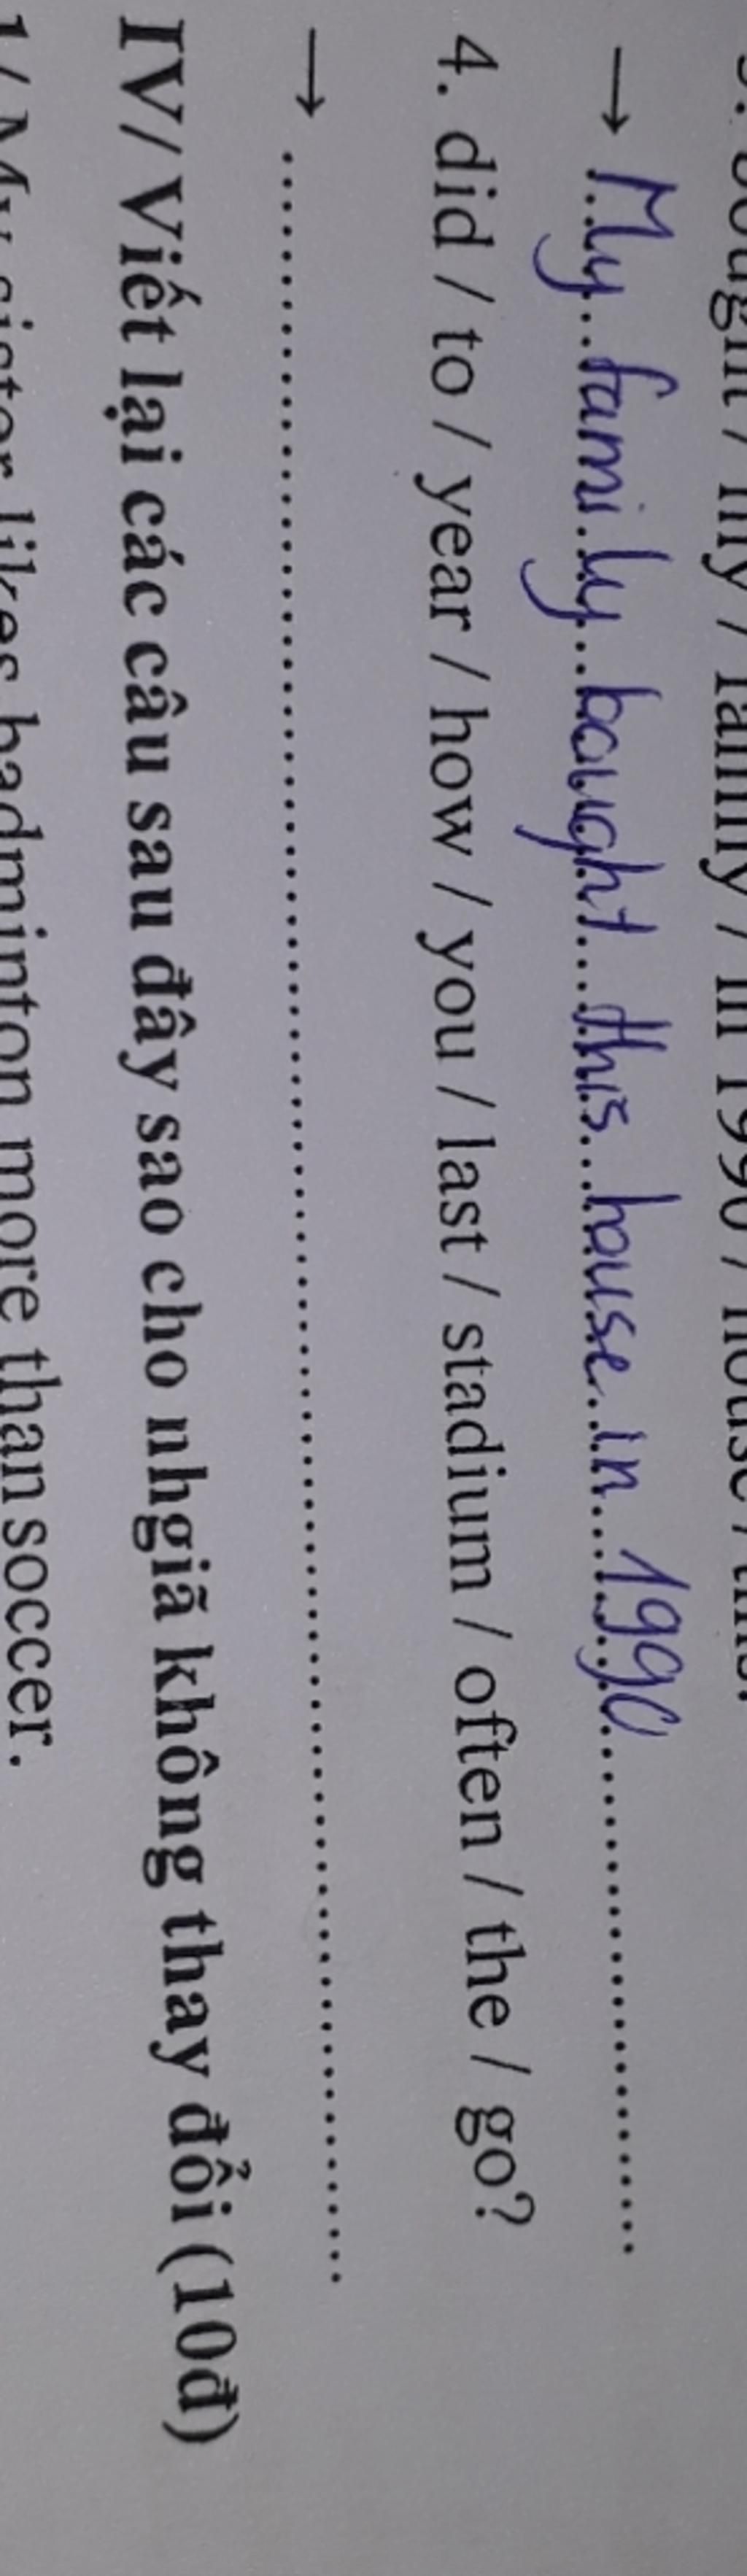 → My family bought this house in 1990
4. did / to / year / how / you / last / stadium / often / the / go?
→ ........................................................................
IV/ Viết lại các câu sau đây sao cho nhgiã không thay đổi (10đ)
1/ My sister likes badminton more than soccer.